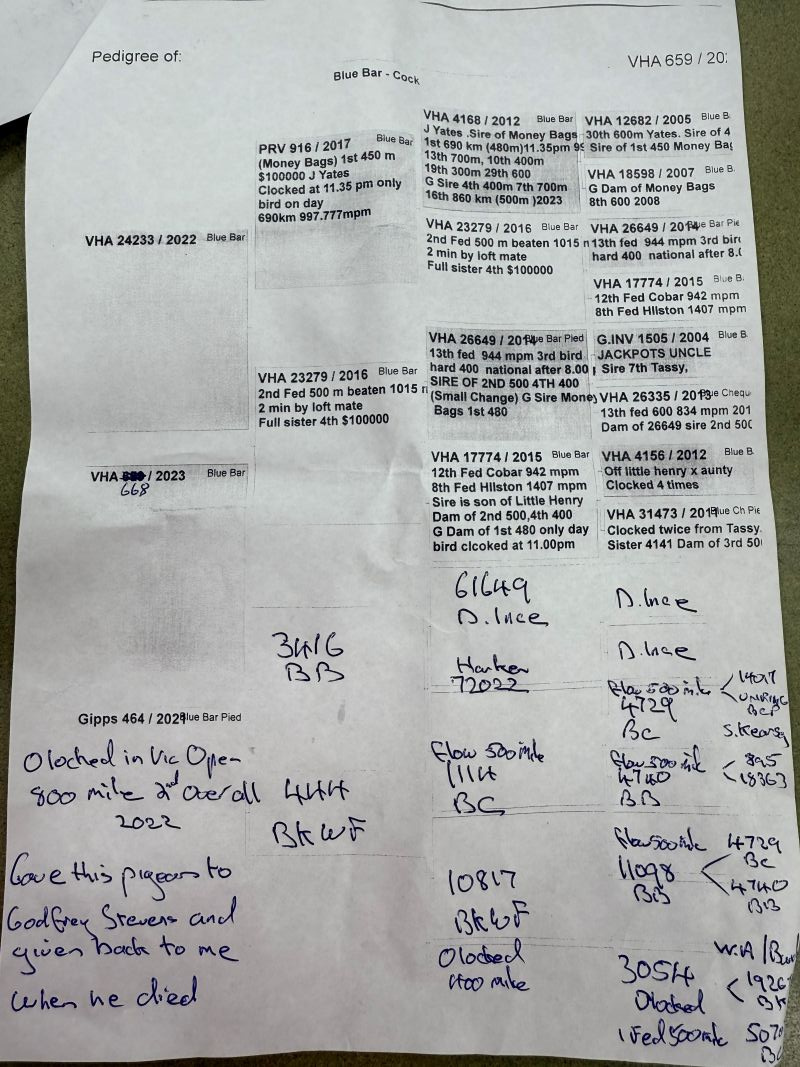 Pedigree of:
Blue Bar - Cock
VHA 659 / 202
VHA 24233 / 2022 Blue Bar
VHA 659 / 2023 Blue Bar
668
Gipps 464 / 2021 Blue Bar Pied
Olocked in Vic Open
800 mile 2nd Overall
2022
Gave this pigeons to
Godfrey Stevens and
given back to me
when he died
PRV 916 / 2017 Blue Bar
(Money Bags) 1st 450 m
$100000 J Yates
Clocked at 11.35 pm only
bird on day
690km 997.777mpm
VHA 23279 / 2016 Blue Bar
2nd Fed 500 m beaten 1015 n
2 min by loft mate
Full sister 4th $100000
3416
BB
444
BKWF
VHA 4168 / 2012 Blue Bar
J Yates .Sire of Money Bags
1st 690 km (480m)11.35pm 99
13th 700m, 10th 400m
19th 300m 29th 600
G Sire 4th 400m 7th 700m
16th 860 km (500m )2023
VHA 23279 / 2016 Blue Bar
2nd Fed 500 m beaten 1015 n
2 min by loft mate
Full sister 4th $100000
VHA 26649 / 2014 Blue Bar Pied
13th fed 944 mpm 3rd bird
hard 400 national after 8.00 p
SIRE OF 2ND 500 4TH 400
(Small Change) G Sire Money
Bags 1st 480
VHA 17774 / 2015 Blue Bar
12th Fed Cobar 942 mpm
8th Fed Hllston 1407 mpm
Sire is son of Little Henry
Dam of 2nd 500,4th 400
G Dam of 1st 480 only day
bird clcoked at 11.00pm
61649
D.Ince
Harken
72022
flow 500 mile
1114
BC
10817
BKWF
Olocked
400 mile
VHA 12682 / 2005 Blue B
30th 600m Yates. Sire of 4
Sire of 1st 450 Money Bag
VHA 18598 / 2007 Blue B.
G Dam of Money Bags
8th 600 2008
VHA 26649 / 2014 Blue Bar Pie
13th fed 944 mpm 3rd bird
hard 400 national after 8.0
VHA 17774 / 2015 Blue B.
12th Fed Cobar 942 mpm
8th Fed Hllston 1407 mpm
G.INV 1505 / 2004 Blue B
JACKPOTS UNCLE
Sire 7th Tassy,
VHA 26335 / 2013 Blue Chequ
13th fed 600 834 mpm 201
Dam of 26649 sire 2nd 500
VHA 4156 / 2012 Blue B
Off little henry x aunty
Clocked 4 times
VHA 31473 / 2011 Blue Ch Pie
Clocked twice from Tassy.
Sister 4141 Dam of 3rd 50
D.Ince
D.Ince
flow 500 mile
4729
BC
14017
UNRING
BCP
S.Kearsy
flow 500 mile
4740
BB
895
18363
flow 500 mile
11098
BB
4729
BC
4740
BB
3054
Olocked
1 Fed 500 mile
W.A /
1926
BK
507
BC